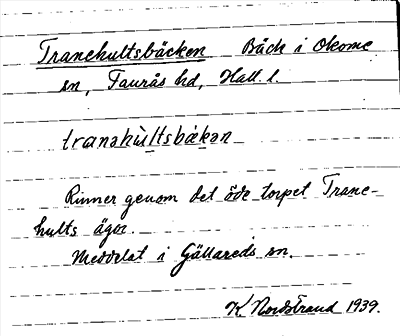 Tranehultsbäcken Bäck i Okome
sn, Faurås hd, Hall. l.
tranəhùltsbǻkən
Rinner genom det öde torpet Trane-
hults ägor.
Meddelat i Gällareds sn.
K. Nordstrand 1939.